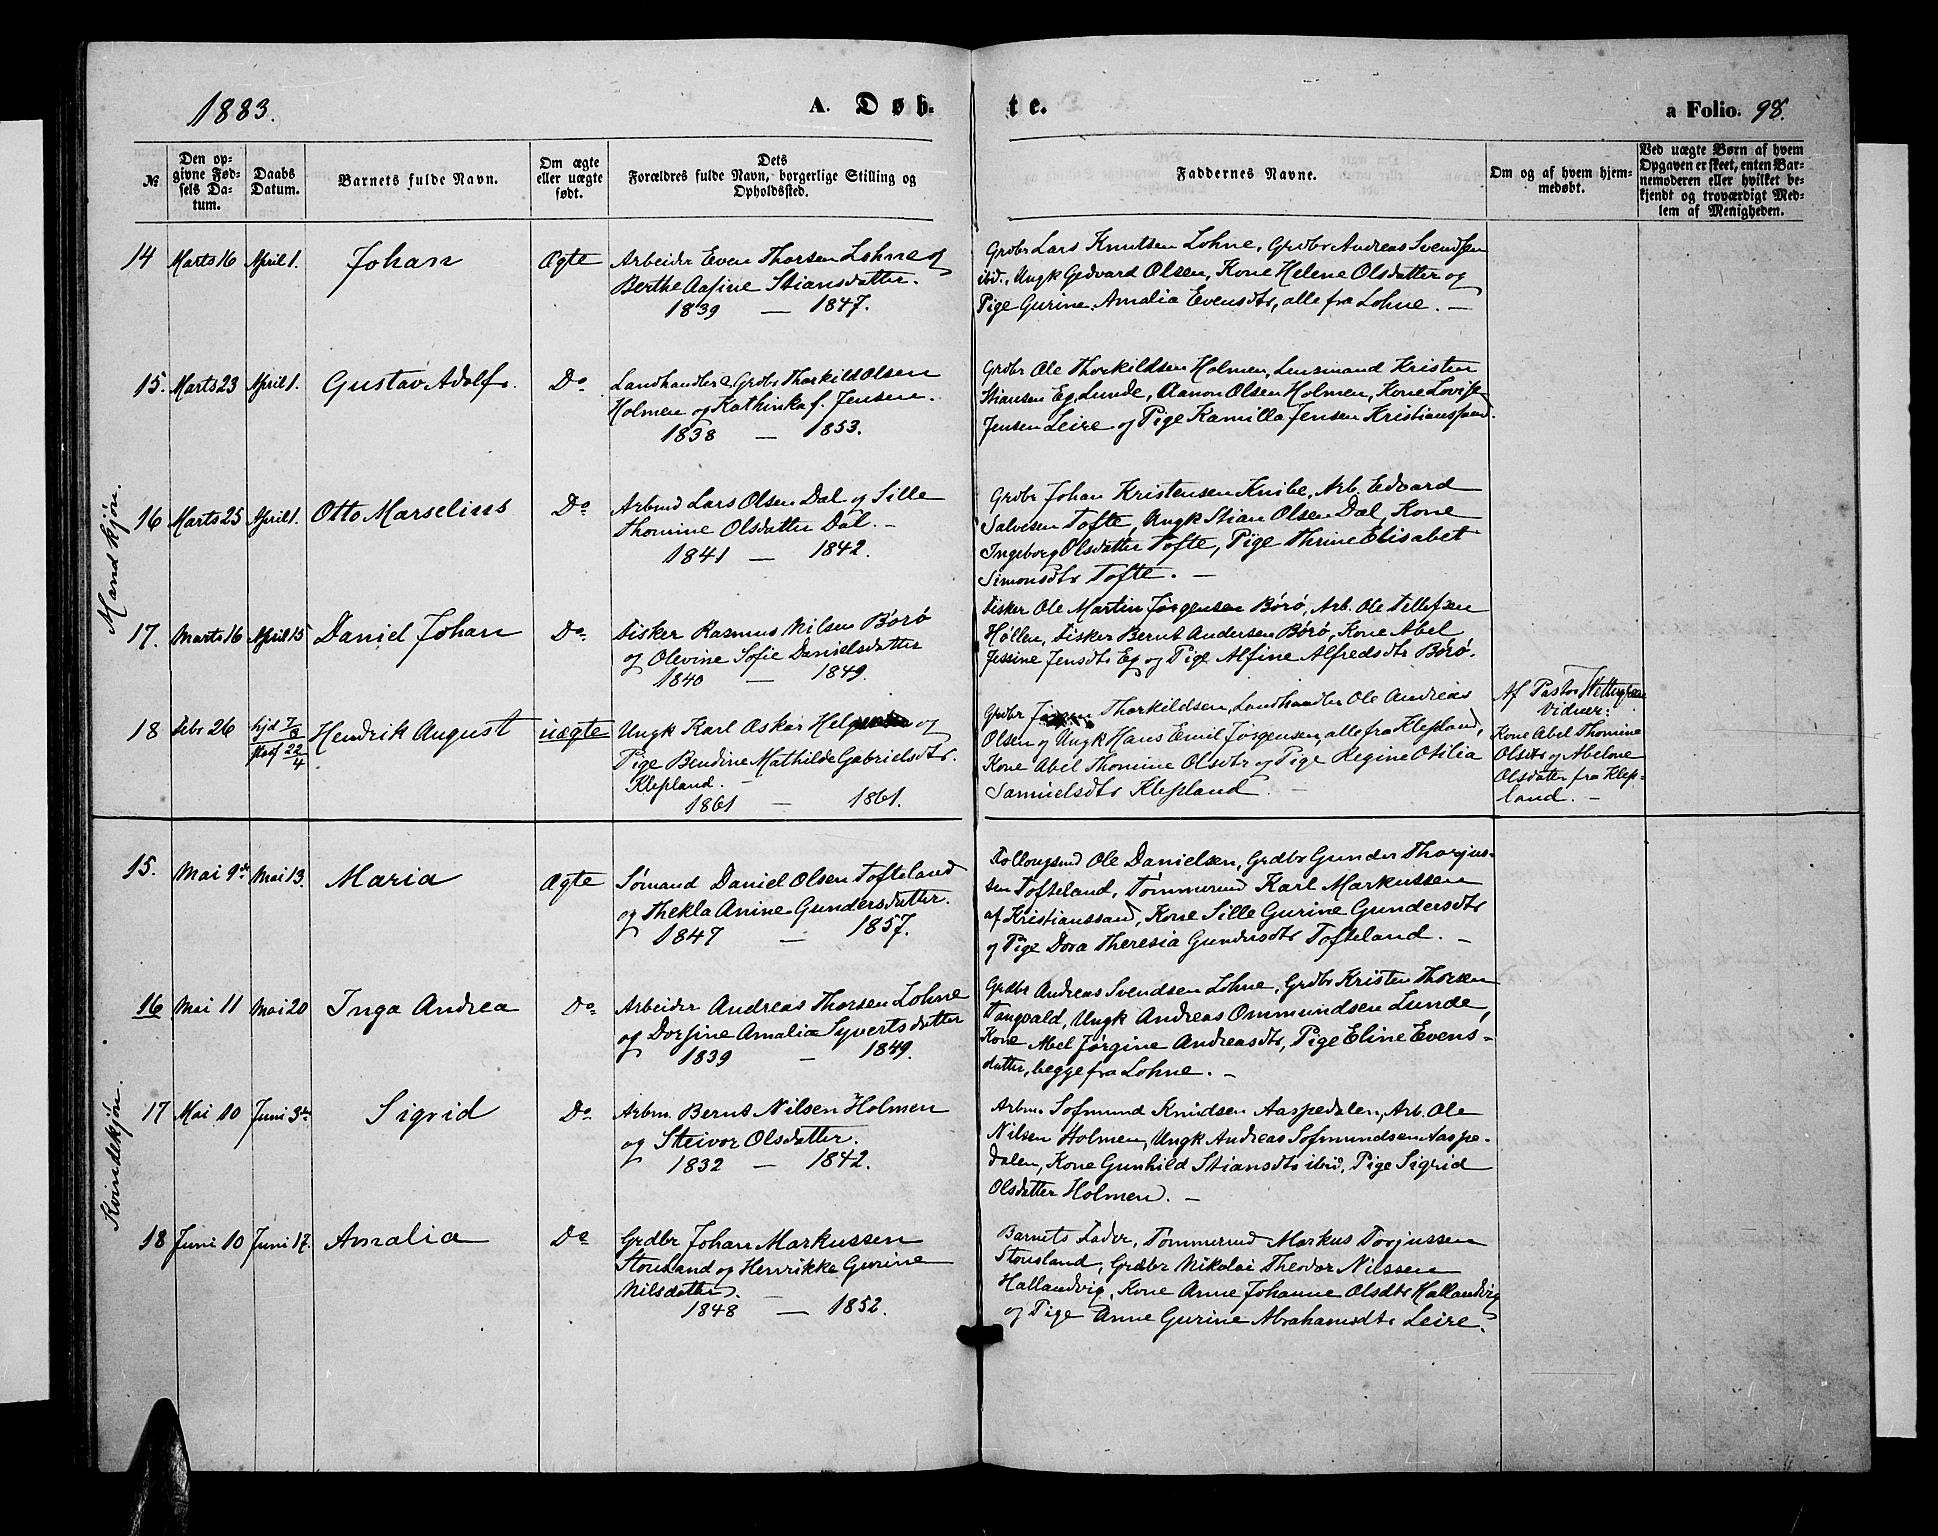 1883.
A. Døb-
te.
a Folio. 98.
№
Den op-
givne Fød-
sels Da-
tum.
Daabs
Datum.
Barnets fulde Navn.
Om ægte
eller uægte
født.
Dets
Forældres fulde Navn, borgerlige Stilling og
Opholdssted.
Faddernes Navne.
Om og af hvem hjem-
medøbt.
Ved uægte Børn af hvem
Opgaven er skeet, enten Bar-
nemoderen eller hvilket be-
kjendt og troværdigt Med-
lem af Menigheden.
Mandkjøn.
14 Marts 16 April 1. Johan Ægte
Arbeider Even Thorsen Lohne og
Berthe Aasine Stiansdatter.
1839 — 1847.
Grdbr Lars Knutsen Lohne, Grdbr Andreas Svendsen
ibd., Ungk Gedvard Olsen, Kone Helene Olsdatter og
Pige Gurine Amalia Evensdtr, alle fra Lohne. —
15. Marts 23 April 1. Gustav Adolf. Do
Landhandler & Grdbr Thorkild Olsen
Holmen og Kathinka f. Jensen.
1838 — 1853.
Grdbr Ole Thorkildsen Holmen, Lensmand Kristen
Stiansen Eg, Lunde, Aanon Olsen Holmen, Kone Lovise
Jensen Leire og Pige Kamilla Jensen Kristianssand.
16 Marts 25 April 1. Otto Marselius Do
Arbmd Lars Olsen Dal og Sille
Thomine Olsdatter Dal. —
1841 — 1842.
Grdbr Johan Kristensen Knibe, Arb. Edvard
Salvesen Tofte, Ungk Stian Olsen Dal, Kone
Ingeborg Olsdatter Tofte, Pige Thrine Elisabet
Simonsdtr Tofte. —
17. Marts 16 April 15 Daniel Johan Do
Fisker Rasmus Nilsen Börö
og Olevine Sofie Danielsdatter
1840 — 1849.
Fisker Ole Martin Jørgensen Börö, Arb. Ole Tellefsen
Høllen, Fisker Bernt Andersen Börö, Kone Abel
Jessine Jensdtr Eg og Pige Alfine Alfredsdtr Börö.
18 Febr 26 hjd 7/3 Hendrik August uægte
stadf 22/4
Ungk Karl Askar og
Pige Bendine Mathilde Gabrielsdtr.
Klepland. —
1861 — 1861.
Grdbr Jørgen Thorkildsen, Landhandler Ole Andreas
Olsen og Ungk Hans Emil Jørgensen, alle fra Klepland,
Kone Abel Thomine Olsdtr og Pige Regine Otilia
Samuelsdtr Klepland. —
Af Pastor
Vidner:
Kone Abel Thomine
Olsdtr og Abelone
Olsdatter fra Klep-
land. —
Kvindekjøn.
15. Mai 9de Mai 13. Maria Ægte
Sømand Daniel Olsen Tofteland
og Thekla Anine Gundersdatter.
1847 — 1857.
Ole Danielsen, Grdbr Gunder Thorjus-
sen Tofteland, Tømmermd Karl Markussen
af Kristianssand, Kone Sille Gurine Gundersdtr
og Pige Dora Theresia Gundersdtr Tofteland. —
16 Mai 11 Mai 20 Inga Andrea Do
Arbeider Andreas Thorsen Lohne
og Dorfine Amalia Syvertsdatter
1839 — 1849.
Grdbr Andreas Svendsen Lohne, Grdbr Kristen Thorsen
Tangvald, Ungk Andreas Ommundsen Lunde,
Kone Abel Jørgine Andreasdtr, Pige Eline Evens-
datter, begge fra Lohne. —
17 Mai 10 Juni 3die Sigrid Do
Arbm. Bernt Nilsen Holmen
og Steivor Olsdatter.
1832 — 1842.
Arbm. Sofmund Knudsen Aaspedalen, Arb. Ole
Nilsen Holmen, Ungk Andreas Sofmundsen Aaspe-
dalen, Kone Gunhild Stiansdtr ibid, Pige Sigrid
Olsdatter Holmen. —
18 Juni 10 Juni 17. Amalia Do
Grdbr Johan Markussen
Stousland og Henrikke Gurine
Nilsdatter. —
1848 — 1852.
Barnets Fader, Tømmermd Markus Torjussen
Stousland, Grdbr Nikolai Theodor Nilssen
Hallandvig, Kone Anne Johanne Olsdtr Hallandvig
og Pige Anne Gurine Abrahamsdtr Leire.